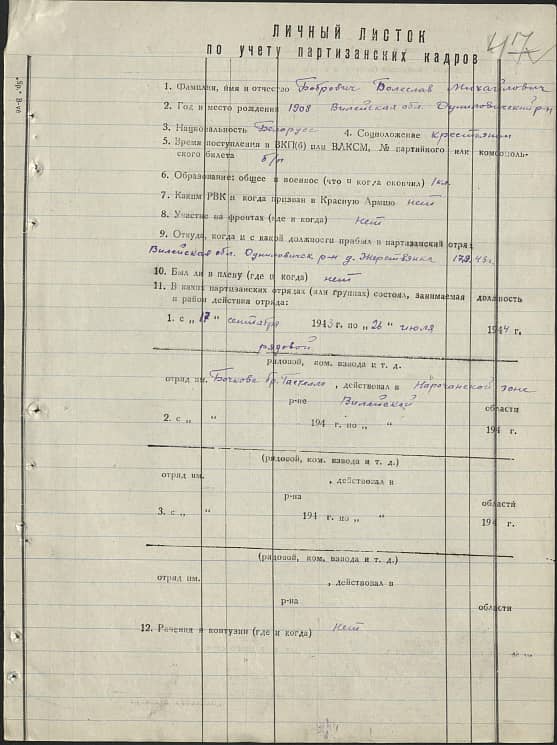 ЛИЧНЫЙ ЛИСТОК
по учету партизанских кадров
47
1. Фамилия, имя и отчество Бобрович Болеслав Михайлович
2. Год и место рождения 1908 Вилейская обл. Дуниловичский р-н
3. Национальность Белорус 4. Соцположение крестьянин
5. Время поступления в ВКП(б) или ВЛКСМ, № партийного или комсомоль-
ского билета б/п
6. Образование: общее и военное (что и когда окончил) 1 кл.
7. Каким РВК и когда призван в Красную Армию нет
8. Участие на фронтах (где и когда) Нет
9. Откуда, когда и с какой должности прибыл в партизанский отряд
Вилейская обл. р-н д. 43 г.
10. Был ли в плену (где и когда) нет
11. В каких партизанских отрядах (или группах) состоял, занимаемая должность
и район действия отряда:
1. с „ 17 " сентября 1943 г. по „ 26 " июля 1944 г.
рядовой
рядовой, ком. взвода и т. д.
отряд им. бр. , действовал в Нарочанской зоне
р-не Вилейской области
2. с „ " 194 г. по „ " 194 г.
(рядовой, ком. взвода и т. д.)
отряд им. , действовал в
р-на области
3. с „ " 194 г. по „ " 194 г.
(рядовой, ком. взвода и т. д.)
отряд им. , действовал в
р-на области
12. Ранения и контузии (где и когда) Нет